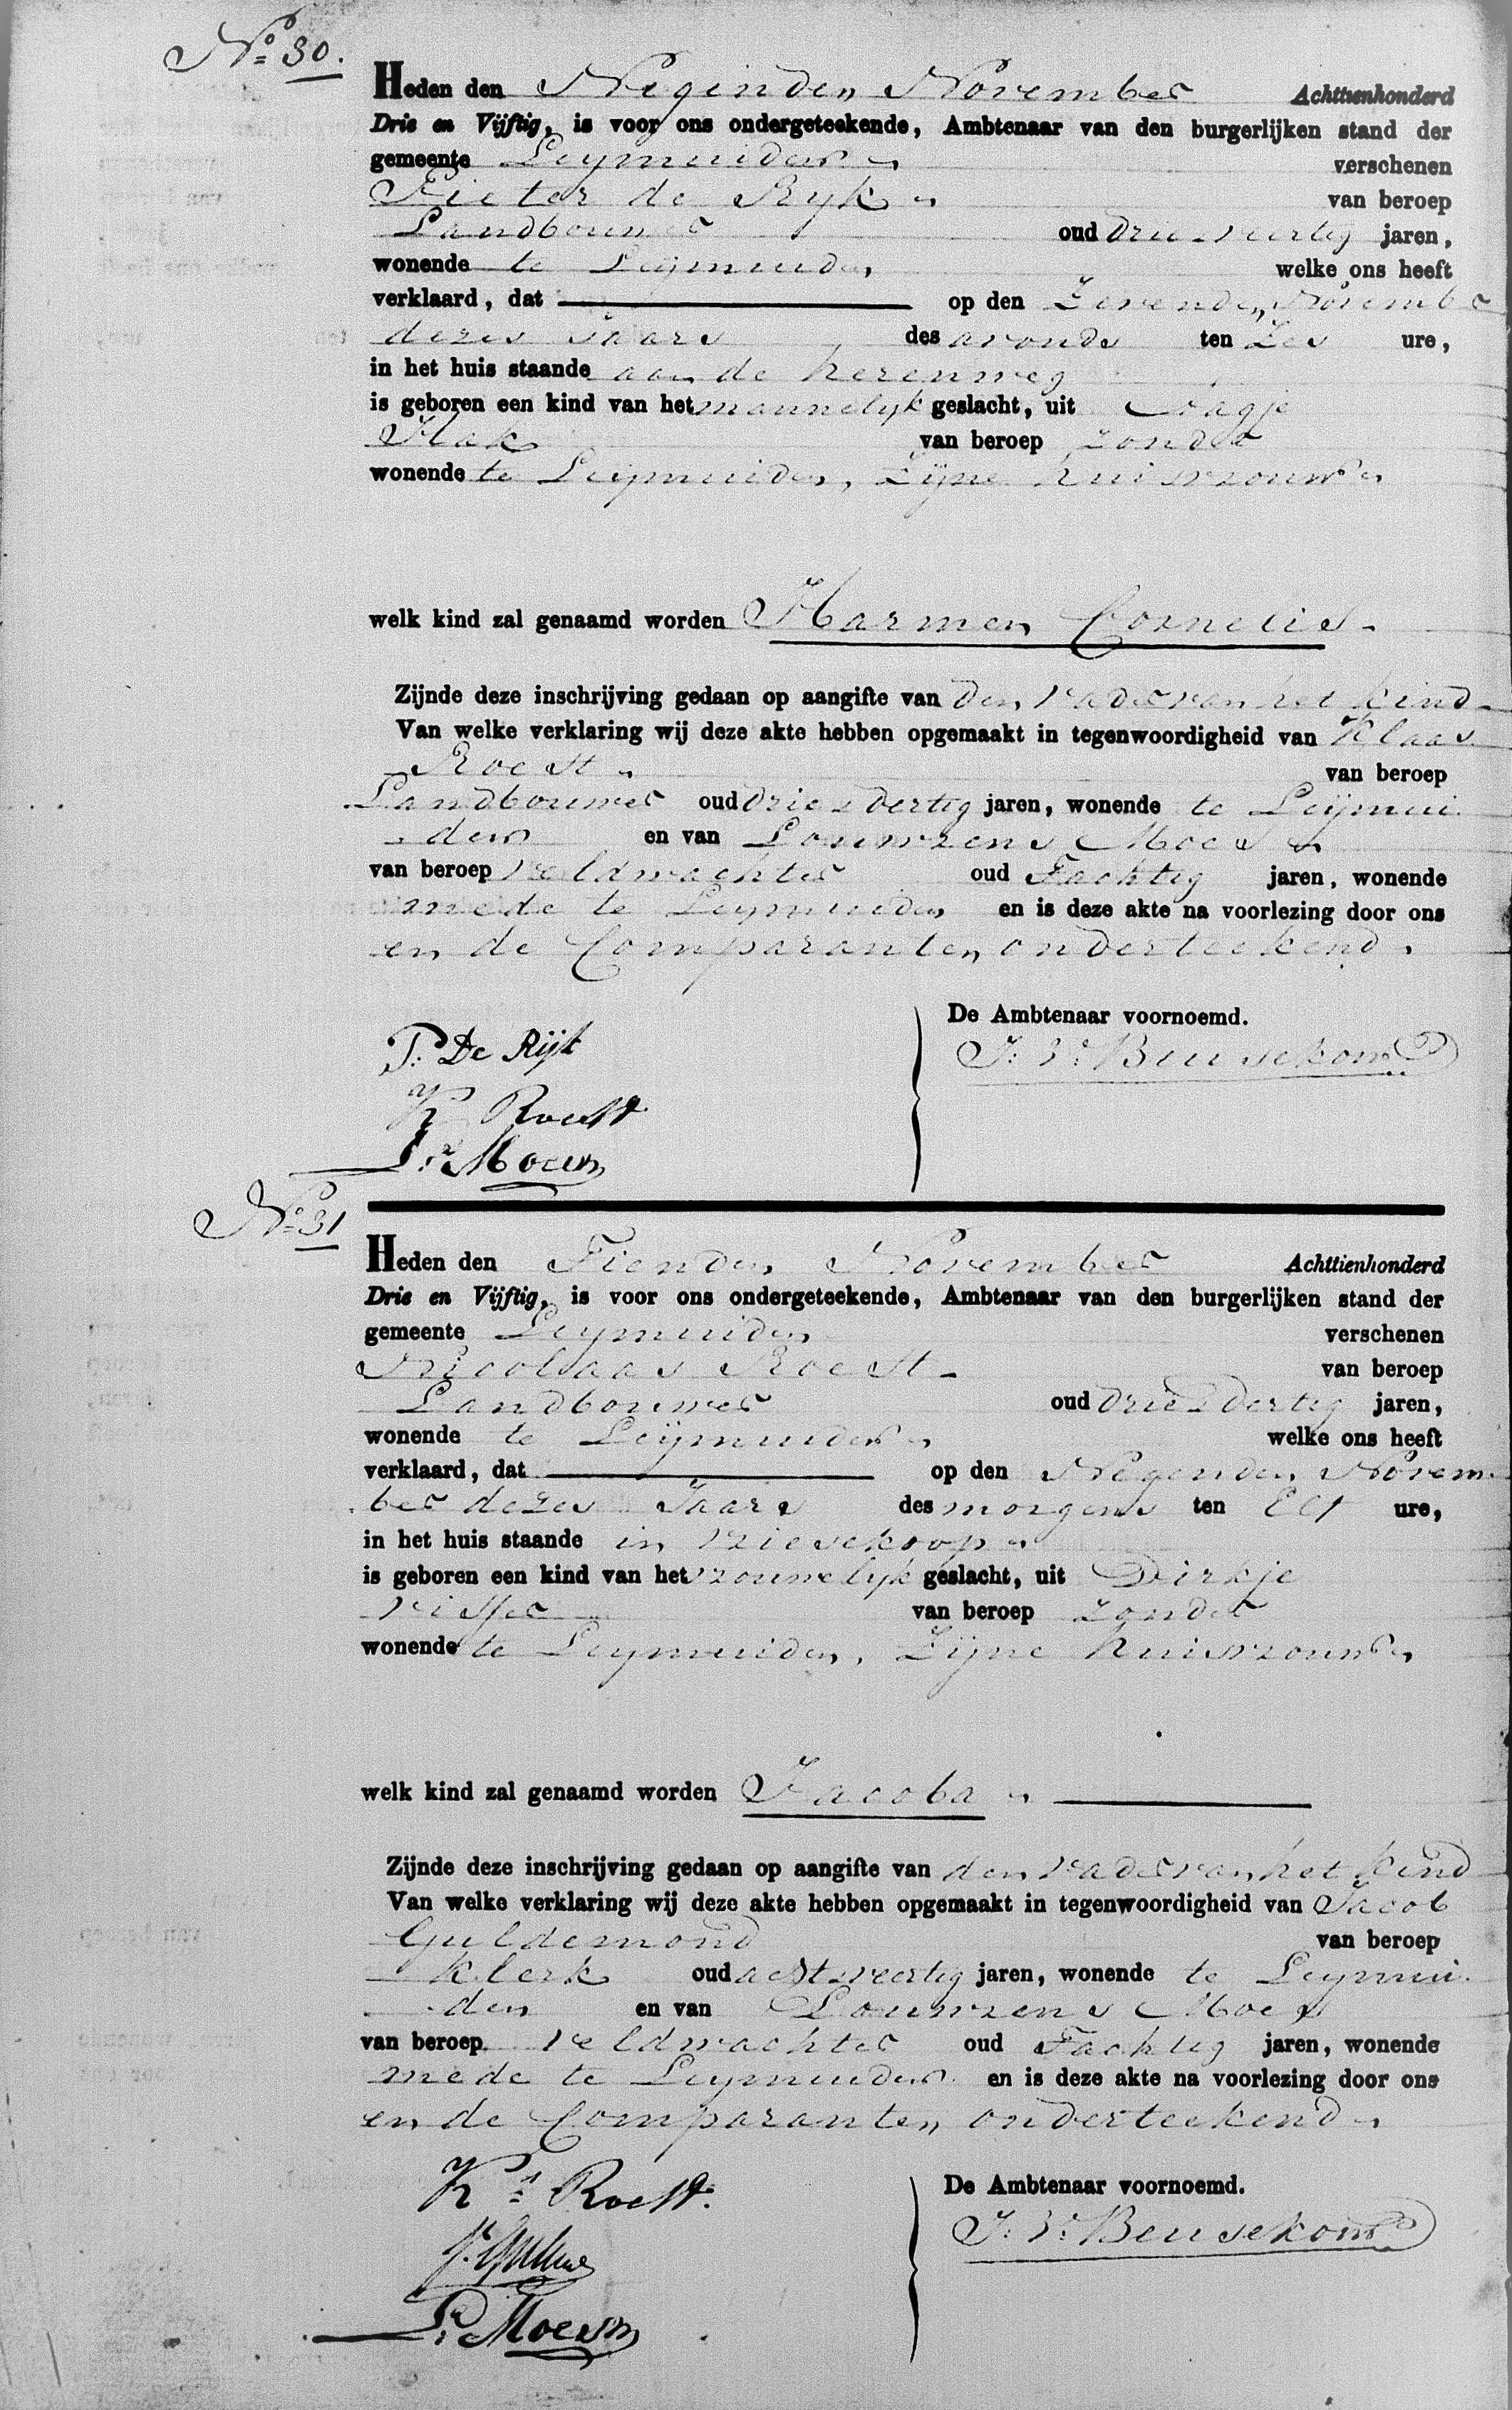 No 30.
Heden den Neginden November Achttienhonderd
Drie en Vijftig, is voor ons ondergeteekende, Ambtenaar van den burgerlijken stand der
gemeente Leymuiden verschenen
Pieter de Ryk van beroep
Landbouwer oud drie veertig jaren,
wonende te Leijmuiden welke ons heeft
verklaard, dat op den Zevenden Novembe
dezes Jaars des avonds ten Zes ure,
in het huis staande aan de herenweg
is geboren een kind van het mannelyk geslacht, uit
Hak van beroep zonder
wonende te Leijmuiden, Zijne huisvrouw
welk kind zal genaamd worden Harmen Cornelis
Zijnde deze inschrijving gedaan op aangifte van den vader van het kind
Van welke verklaring wij deze akte hebben opgemaakt in tegenwoordigheid van Klaas
Roest van beroep
Landbouwer oud drie & dertig jaren, wonende te Leijmui
den en van Louwrens Moes
van beroep veldwachter oud Tachtig jaren, wonende
mede te Leymuiden en is deze akte na voorlezing door ons
en de Comparanten onderteekend.
De Ambtenaar voornoemd.
P: De Rijk
J: V: Beusekom
K Roest
L: Moes
No 31
Heden den Tienden November Achttienhonderd
Drie en Vijftig, is voor ons ondergeteekende, Ambtenaar van den burgerlijken stand der
gemeente Leymuiden verschenen
Nicolaas Roest van beroep
Landbouwer oud drie & dertig jaren,
wonende te Leijmuiden welke ons heeft
verklaard, dat op den Negenden Novem
ber dezes Jaars des morgens ten Elf ure,
in het huis staande in Vriesekoop
is geboren een kind van het vrouwelyk geslacht, uit Dirkje
Visser van beroep zonder
wonende te Leymuiden, Zijne huisvrouw
welk kind zal genaamd worden Jacoba
Zijnde deze inschrijving gedaan op aangifte van den vader van het kind
Van welke verklaring wij deze akte hebben opgemaakt in tegenwoordigheid van Jacob
Guldemond van beroep
Klerk oud acht veertig jaren, wonende te Leymui
den en van Louwrens Moes
van beroep veldwachter oud Tachtig jaren, wonende
mede te Leymuiden en is deze akte na voorlezing door ons
en de Comparanten onderteekend
De Ambtenaar voornoemd.
Ks Roest.
J: V: Beusekom
L: Moes